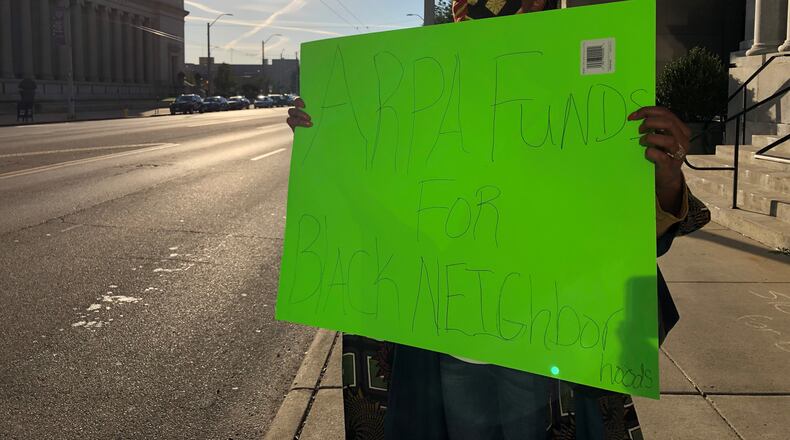 ARPA FUNDS
FOR
BLACK NEIGhbor
hoods